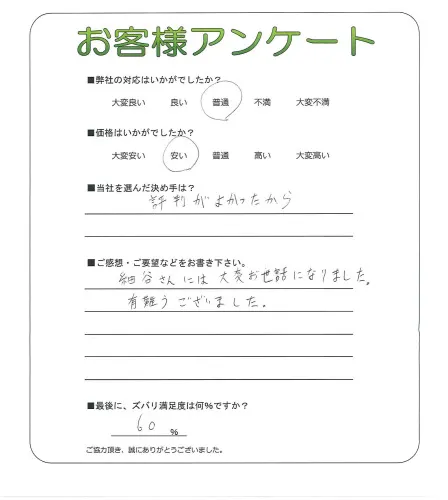 お客様アンケート
■弊社の対応はいかがでしたか?
大変良い 良い 普通 不満 大変不満
■価格はいかがでしたか?
大変安い 安い 普通 高い 大変高い
■当社を選んだ決め手は?
評判がよかったから
■ご感想・ご要望などをお書き下さい。
細谷さんには大変お世話になりました。
有難うございました。
■最後に、ズバリ満足度は何%ですか?
60 %
ご協力頂き、誠にありがとうございました。